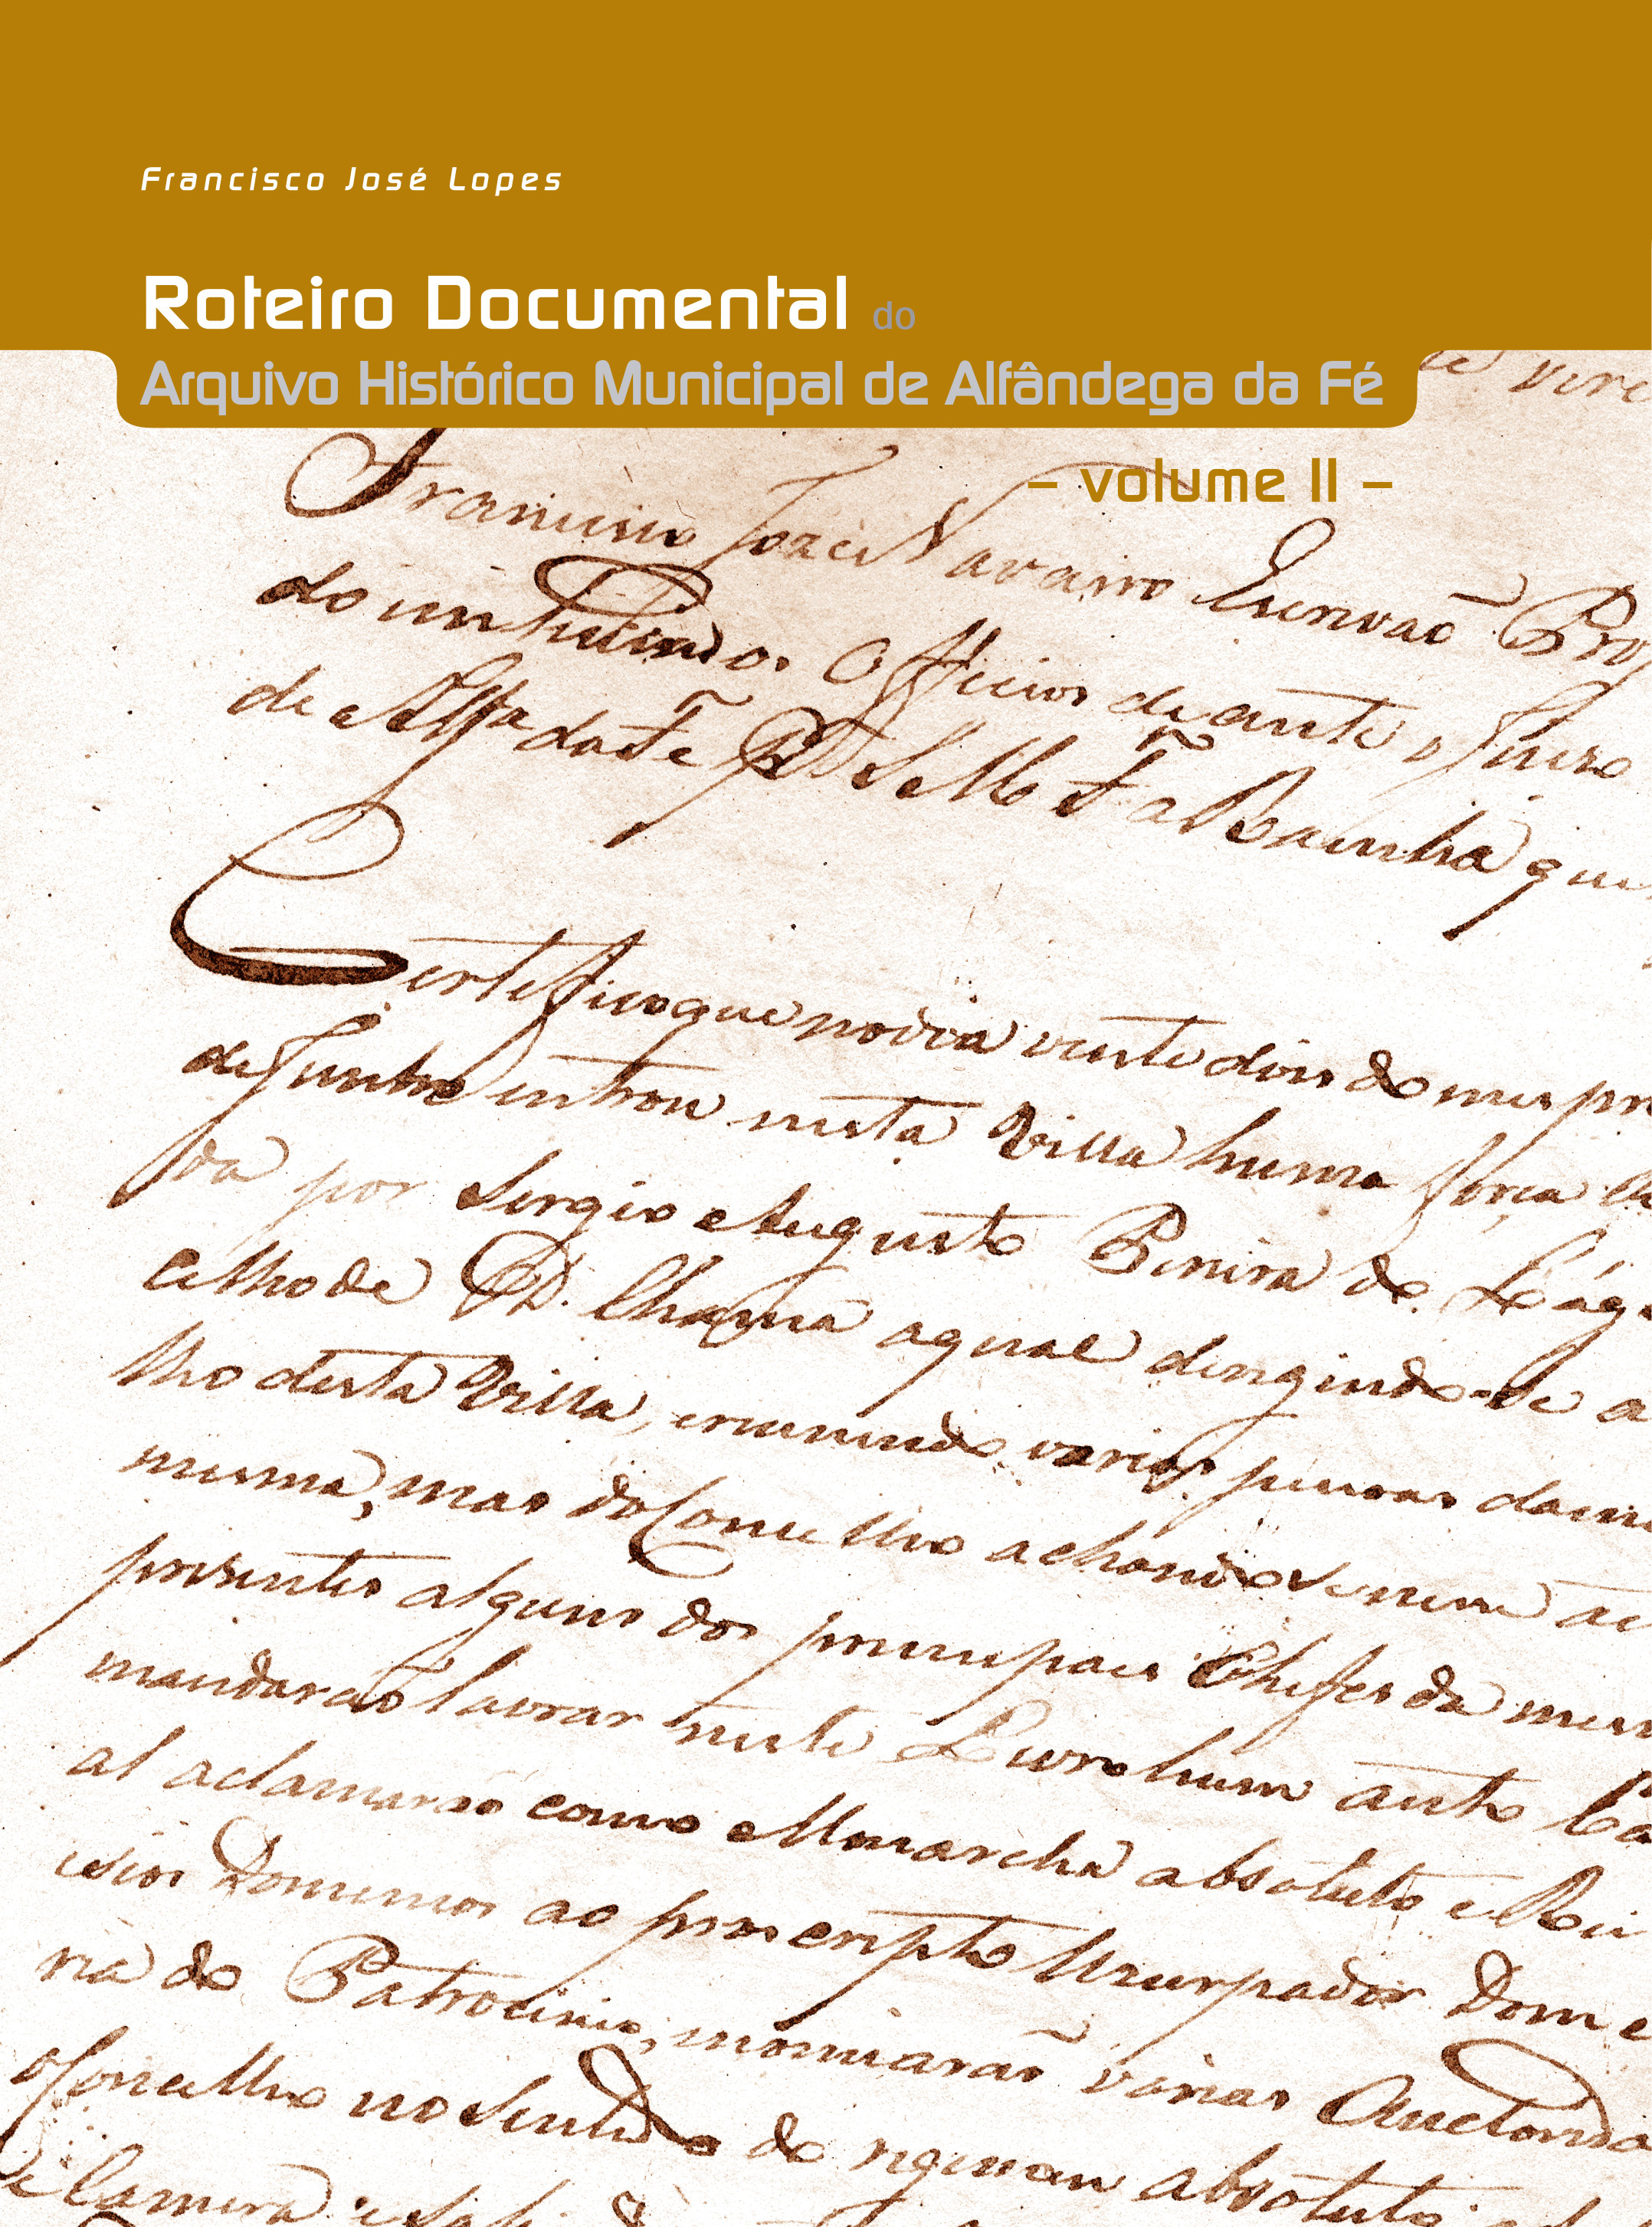 Francisco José Lopes
Roteiro Documental do
Arquivo Histórico Municipal de Alfândega da Fé
– volume II –
Francisco Joze Navarro Escrivaõ
do Officios de ante o Juizo
de Alfa da Fe a Rainha que
Certefico que no dia vinte dois do mes
de Junho entrou nesta Villa huma força
da por Sergio Augusto Pereira do
celho de Chama a qual dirigindo-se a
lho desta Villa, e reunindo varias pessoas da
mesma, mas do Concelho achando se
prezentes alguns dos principaes Chefes da
mandaraõ lavrar neste Livro hum auto
al aclamaraõ como Monarcha absoluto e Rei
Dominios ao proscripto Uzurpador Dom
ria do Patrocinio, nomiaraõ varias
Concelho no sentido do regimen absoluto
Camera